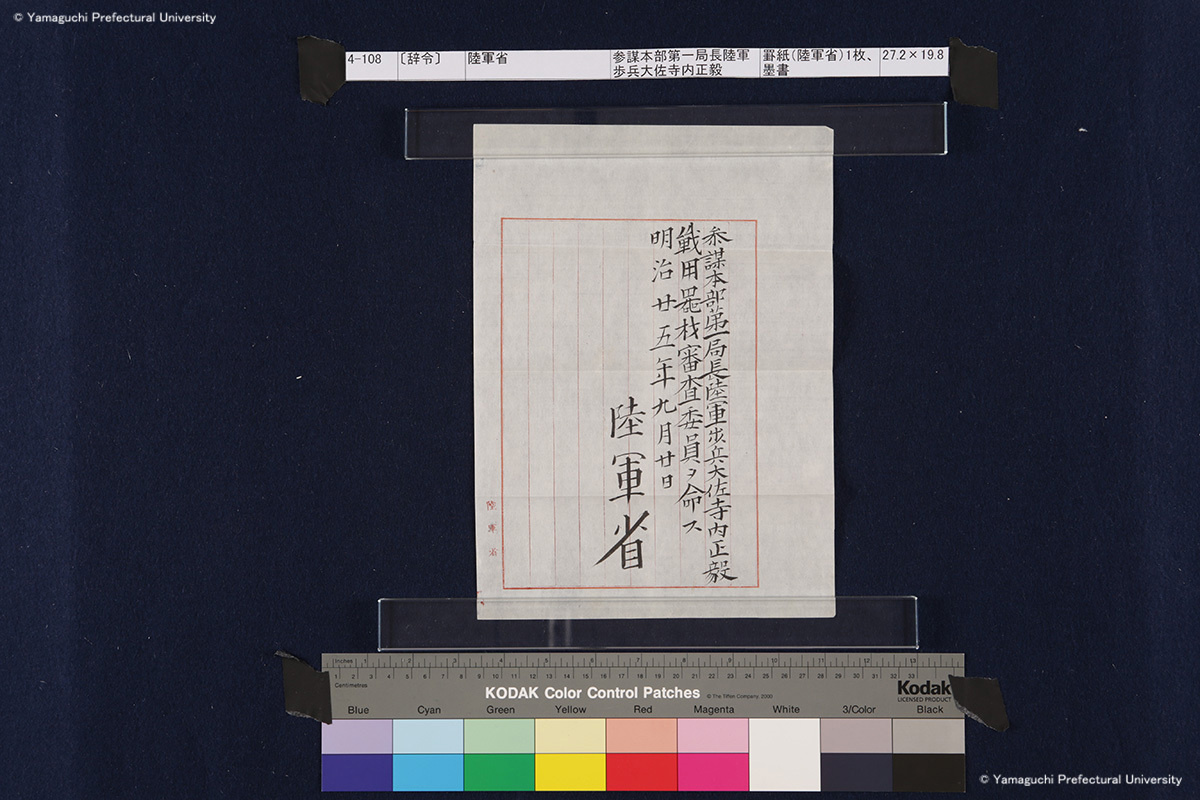 © Yamaguchi Prefectural University
4-108 〔辞令〕 陸軍省 参謀本部第一局長陸軍歩兵大佐寺内正毅 罫紙(陸軍省)1枚、墨書 27.2×19.8
参謀本部第一局長陸軍歩兵大佐寺内正毅
戦用器材審査委員ヲ命ス
明治廿五年九月廿日
陸軍省
陸軍省
Inches 1 2 3 4 5 6 7 8 9 10 11 12 13
Centimetres
KODAK Color Control Patches © The Tiffen Company, 2000
Kodak
LICENSED PRODUCT
Blue Cyan Green Yellow Red Magenta White 3/Color Black
© Yamaguchi Prefectural University